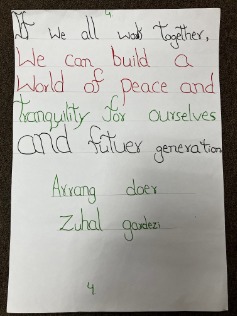 4
If we all work together,
We can build a
World of peace and
tranquility for ourselves
and futuer generation
Arrang doer
Zuhal gardezi
4